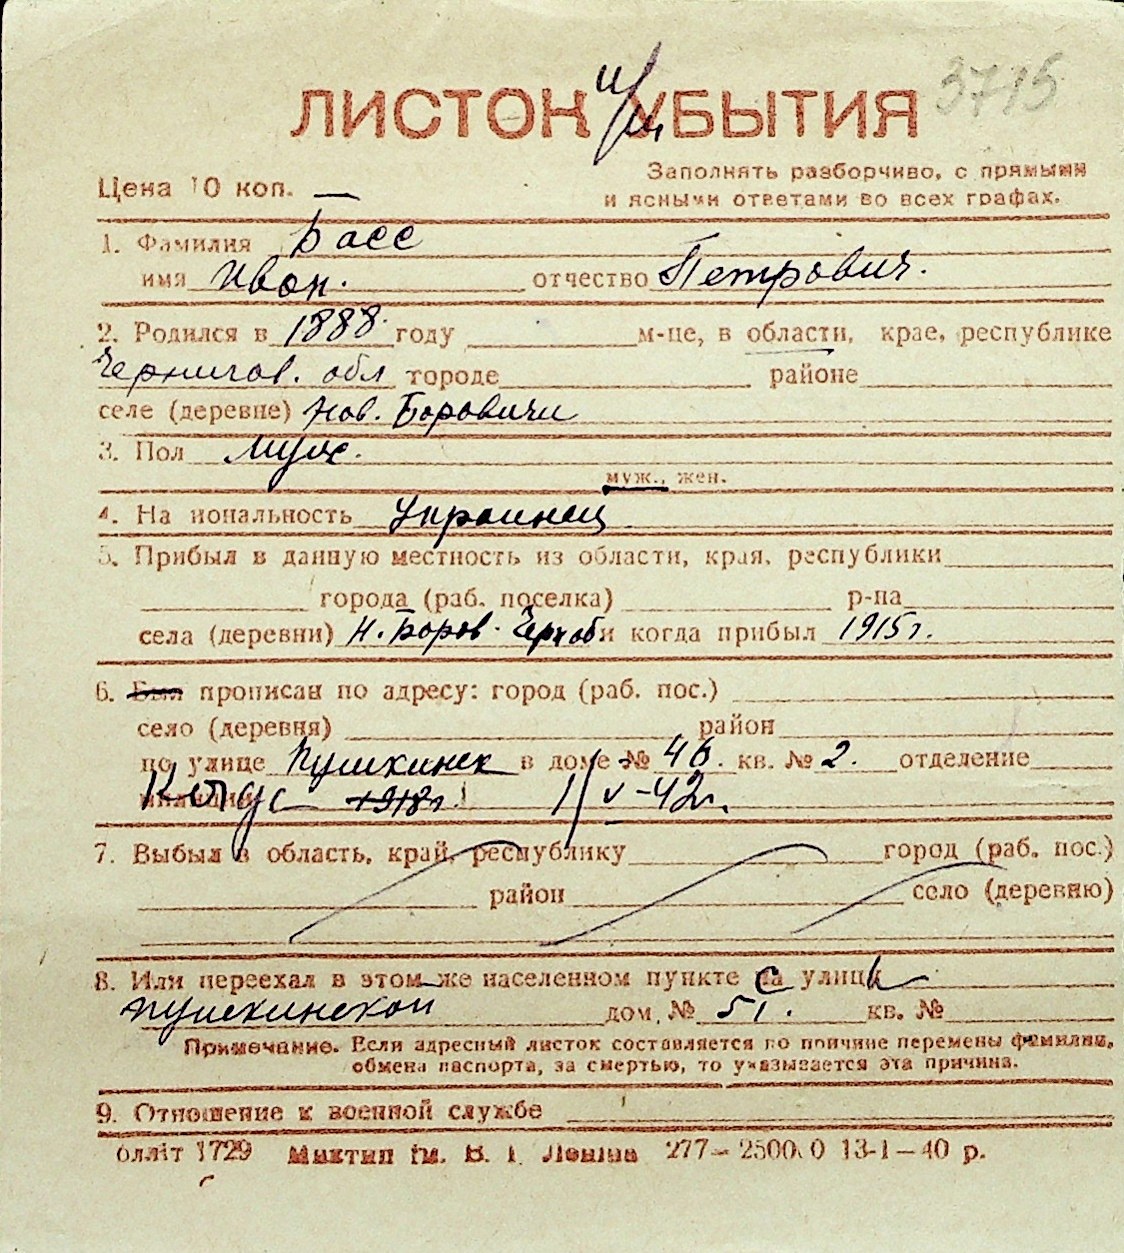 3715
ЛИСТОК УБЫТИЯ
Цена 10 коп.
Заполнять разборчиво, с прямыми
и ясными ответами во всех графах.
1. Фамилия Басс
имя Иван. отчество Петрович.
2. Родился в 1888 году м-це, в области, крае, республике
Чернигов. обл городе районе
селе (деревне) Нов. Боровичи
3. Пол Муж.
муж., жен.
4. На иональность Украинец
5. Прибыл в данную местность из области, края, республики
города (раб. поселка) р-на
села (деревни) Н. Боров. и когда прибыл 1915 г.
6. Был прописан по адресу: город (раб. пос.)
село (деревня) район
по улице Пушкинск в доме № 46. кв. № 2. отделение
милиции 1918 г. 1/V-42 г.
7. Выбыл в область, край, республику город (раб. пос.)
район село (деревню)
8. Или переехал в этом же населенном пункте с улицы
Пушкинской дом. № 51. кв. №
Примечание. Если адресный листок составляется по причине перемены фамилии,
обмена паспорта, за смертью, то указывается эта причина.
9. Отношение к военной службе
блліт 1729 277 — 2500 0 13-1—40 р.